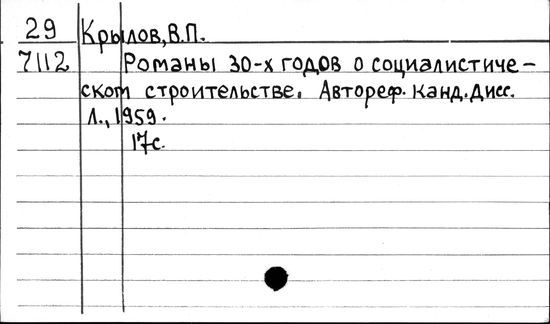 29 Крылов, В.П.
7112 Романы 30-х годов о социалистиче-
ском строительстве. Автореф. канд. дисс.
Л., 1959.
17с.